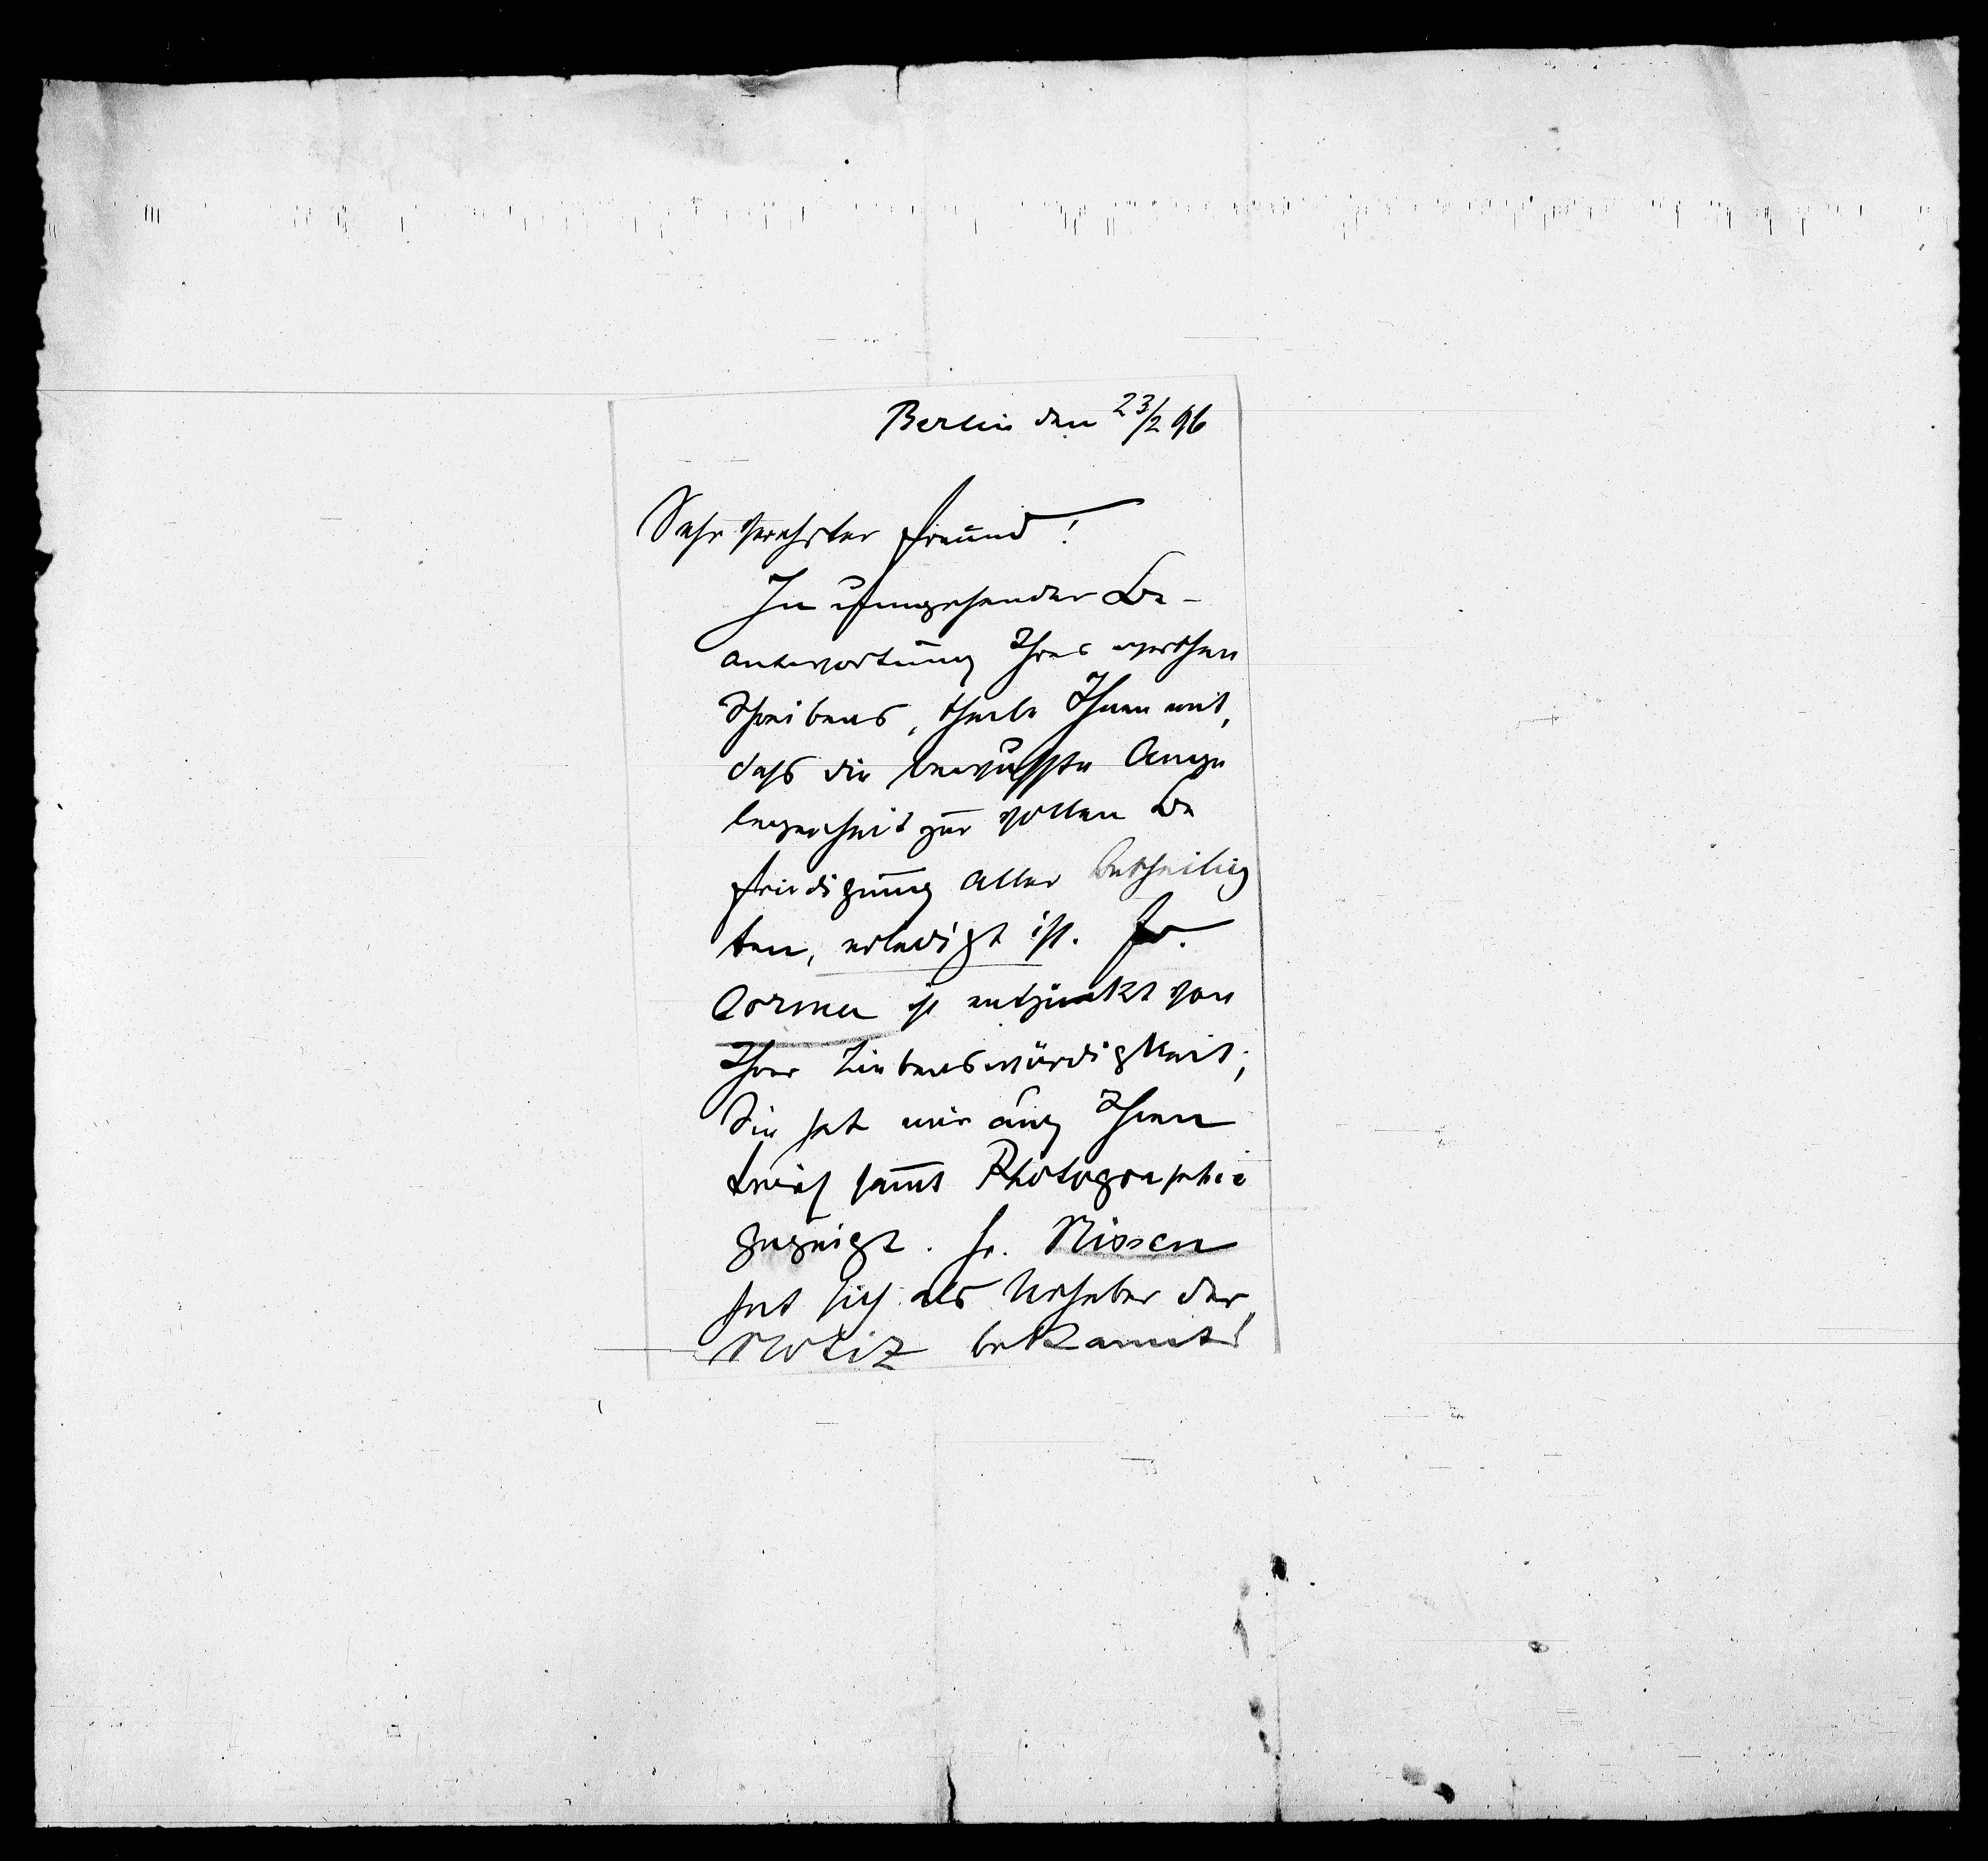 Berlin den 23/2 96
Sehr verehrter Freund!
In umgehender Be-
antwortung Ihres werthen
Schreibens, theile Ihnen mit,
daß die bewußte Ange
legenheit zur vollen Be
friedigung aller Betheilig
ten, erledigt ist. Fr.
Sorma ist entzückt von
Ihrer Liebenswürdigkeit;
Sie hat mir auch Ihren
Brief sammt Photographie
gezeigt. Hr. Nissen
hat sich als Urheber der
Notiz bekannt